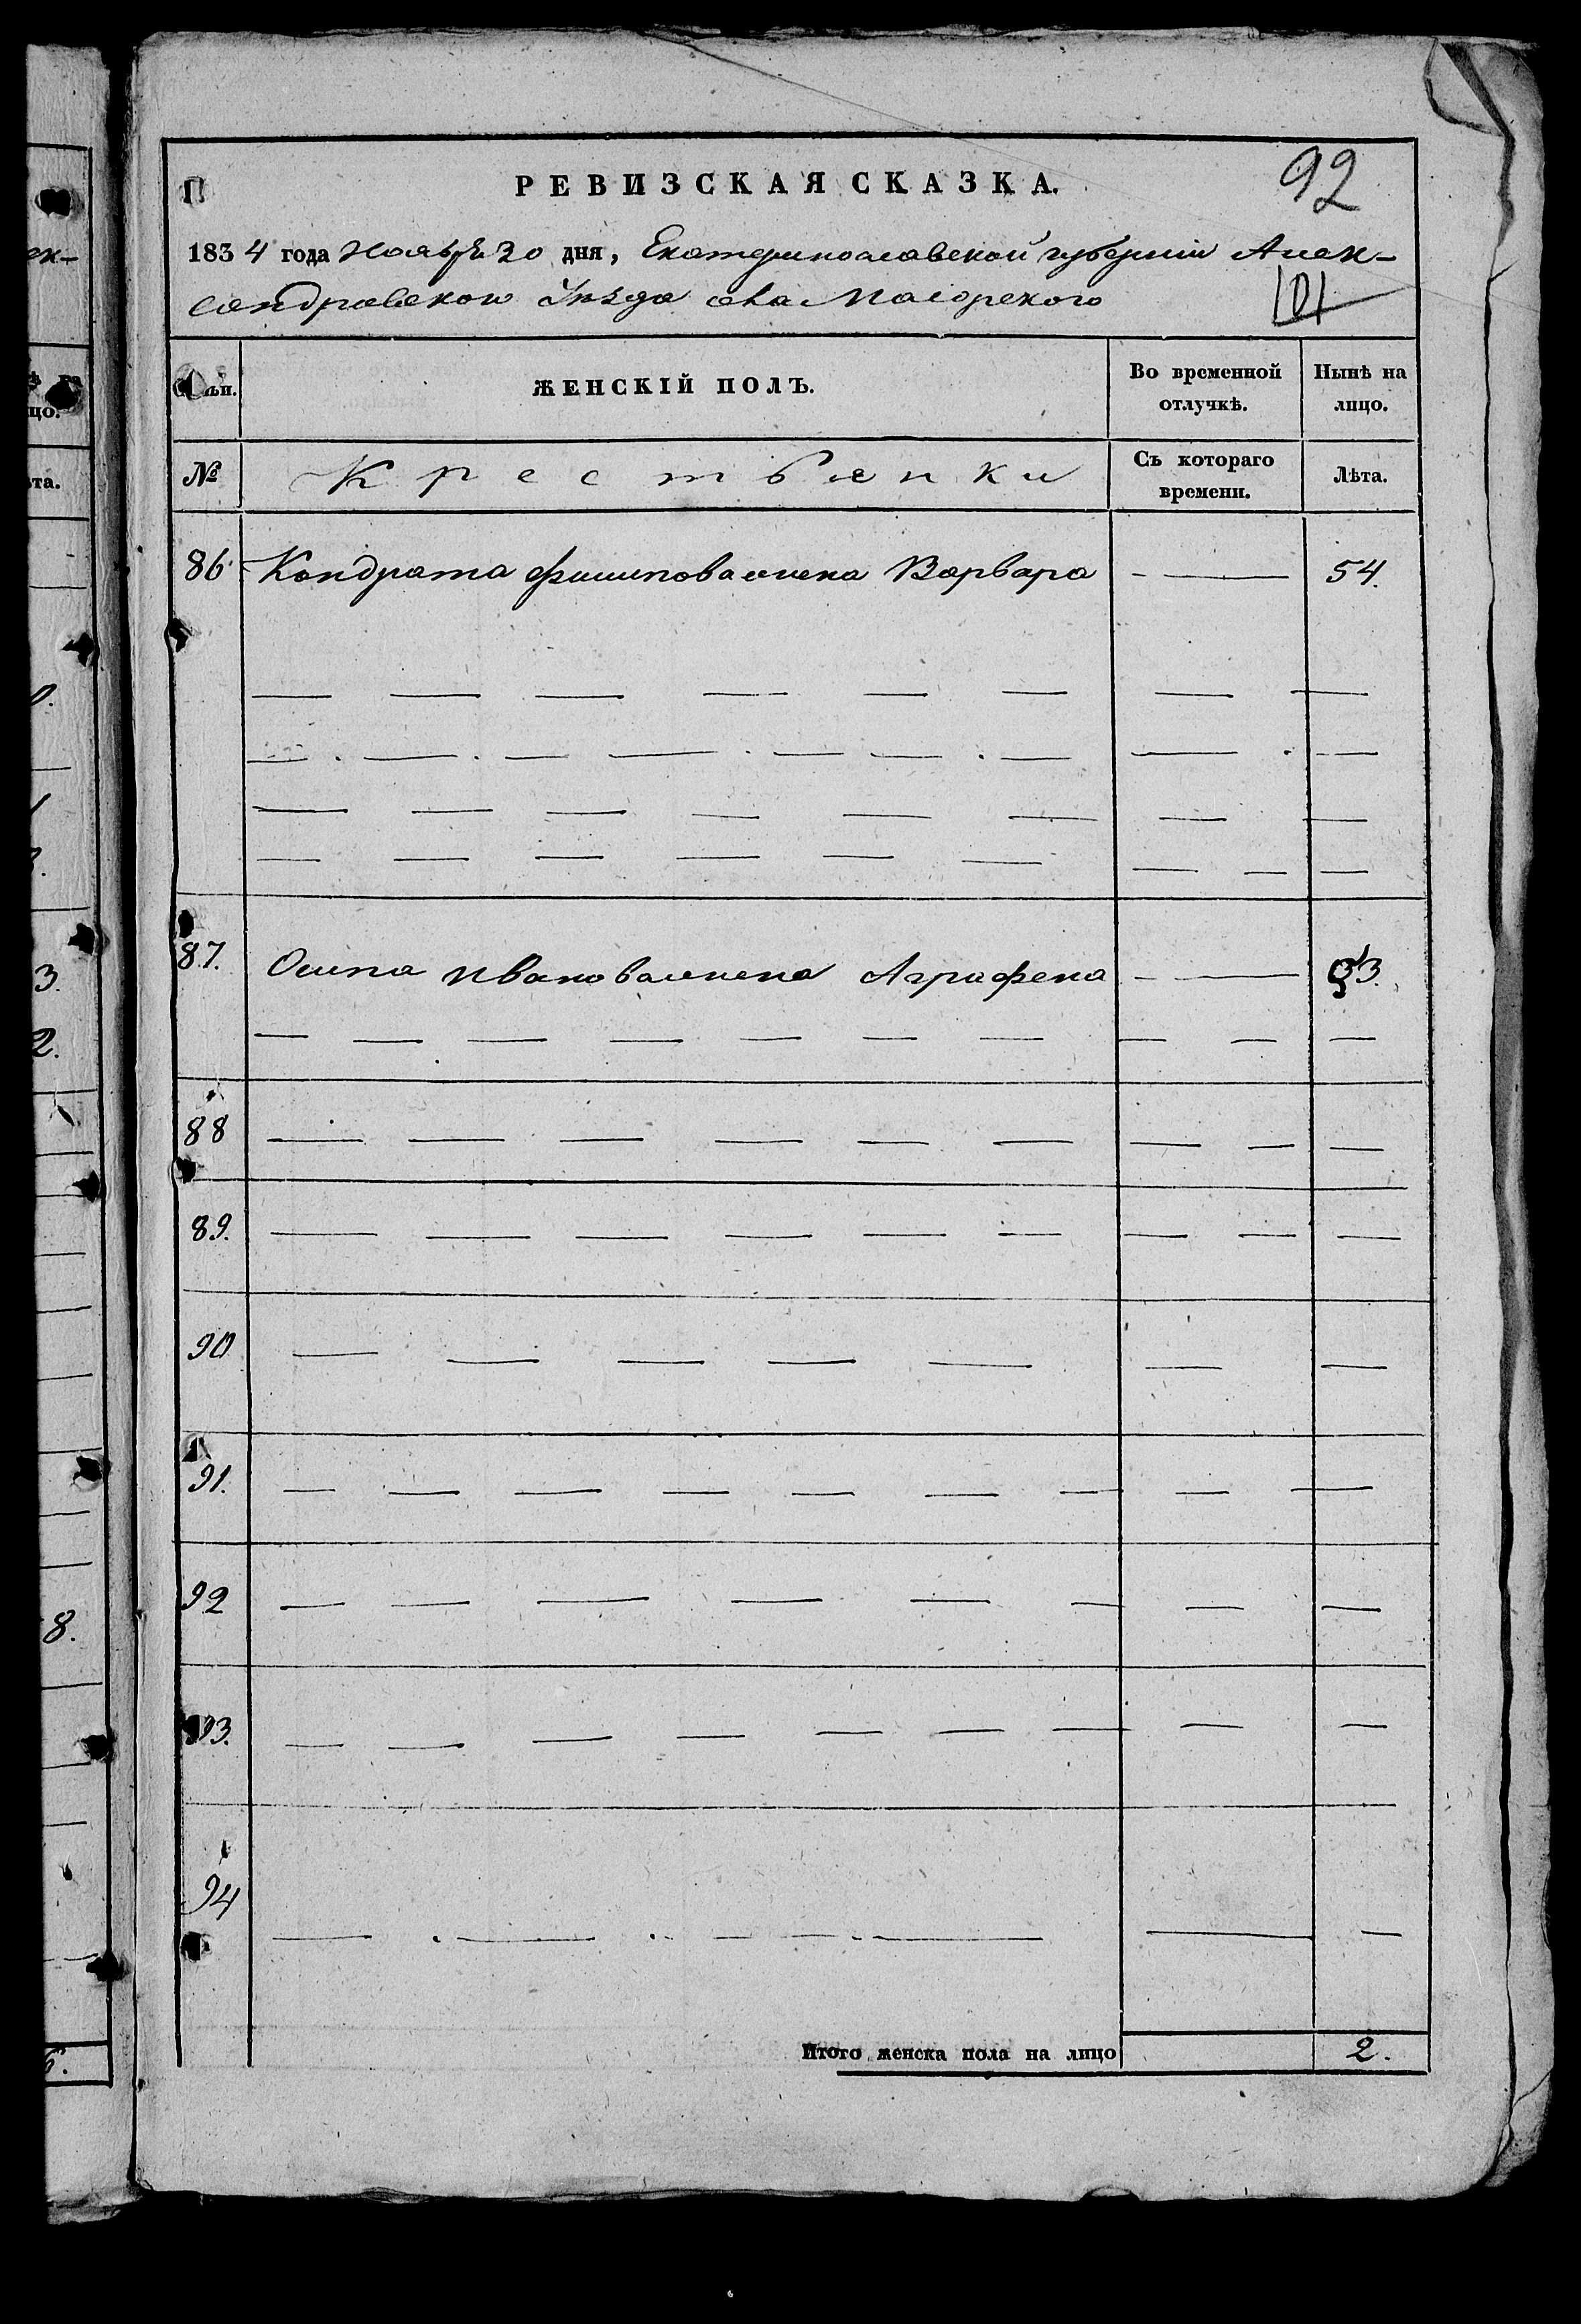 РЕВИЗСКАЯ СКАЗКА.
92
1834 года Ноября 30 дня, Екатеринославской губернии Алек-
сандровского Уезда села Маіорского
101
ЖЕНСКІЙ ПОЛЪ.
Во временной отлучкѣ.
Нынѣ на лицо.
№
Крестьянки
Съ котораго времени.
Лѣта.
86 Кондрата Филипова жена Варвара — 54.
87. Осипа Иванова жена Аграфена —
88
89.
90
91.
92
93.
94
Итого женска пола на лицо 2.